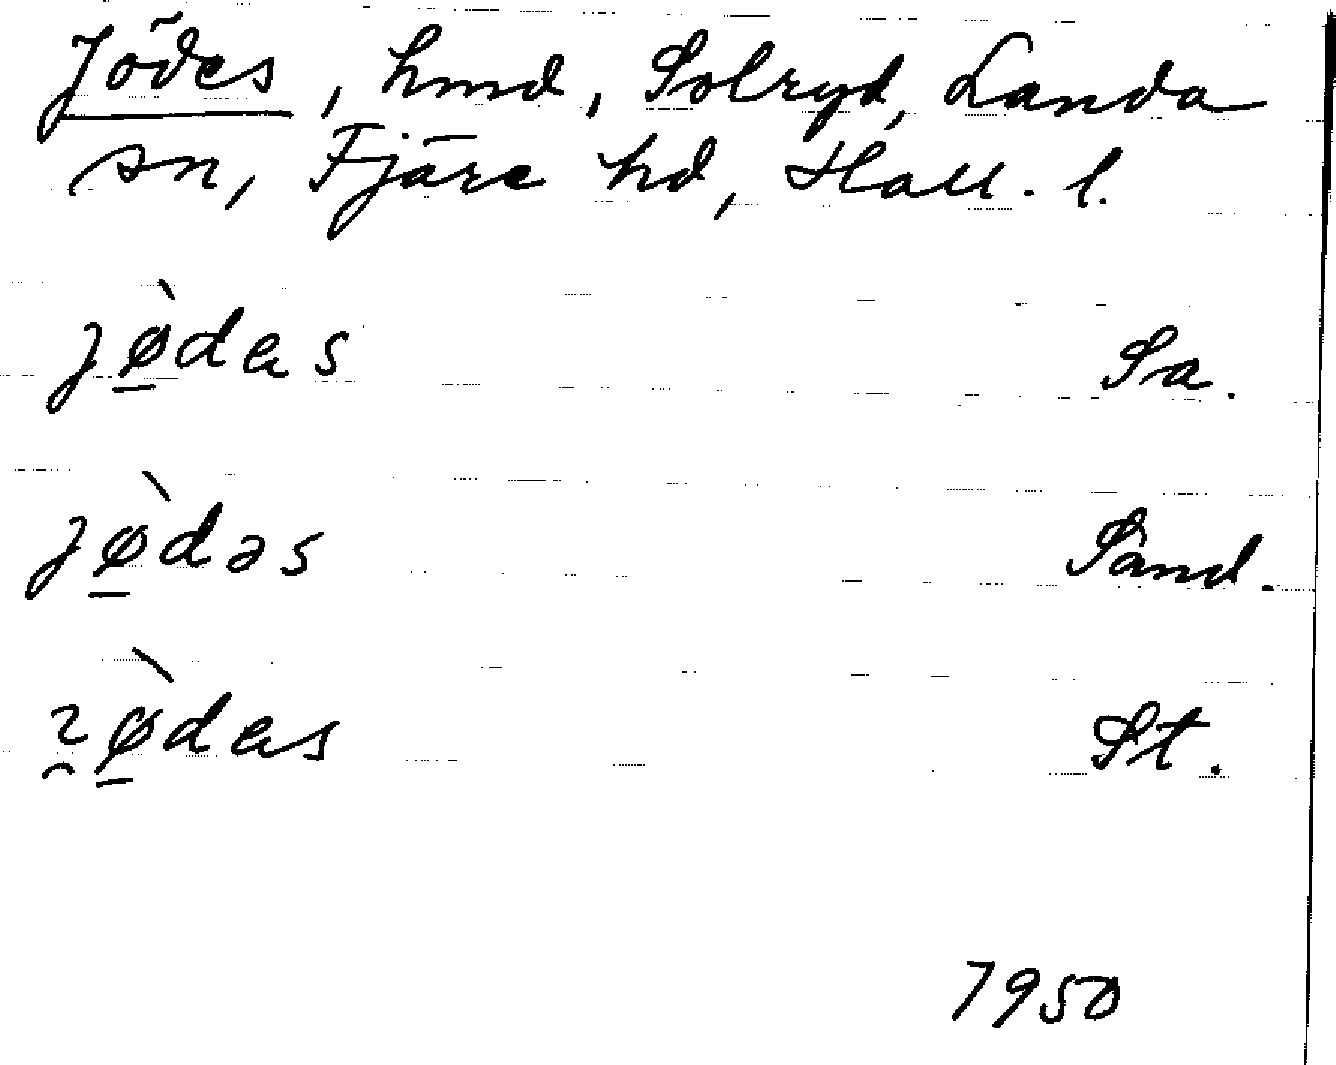 Jödes, hmd, Solryd, Landa
sn, Fjäre hd, Hall. l.
jø̱̀das Sa.
jø̱̀dəs Sand.
ø̱̀das St.
1950